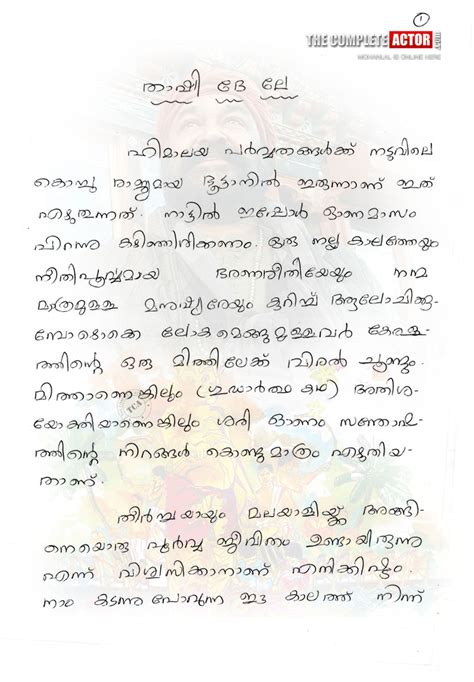 1
THE COMPLETE ACTOR
MOHANLAL IS ONLINE HERE
താഷി ദേ ലേ
ഹിമാലയ പർവ്വതങ്ങൾക്ക് നടുവിലെ
കൊച്ചു രാജ്യമായ ഭൂട്ടാനിൽ ഇരുന്നാണ് ഇത്
എഴുതുന്നത്. നാട്ടിൽ ഇപ്പോൾ ഓണമാസം
പിറന്നു കഴിഞ്ഞിരിക്കണം. ഒരു നല്ല കാലത്തേയും
നീതിപൂർവ്വമായ ഭരണരീതിയേയും നന്മ
മാത്രമുള്ള മനുഷ്യരേയും കുറിച്ച് ആലോചിക്കു-
മ്പോഴൊക്കെ ലോകമെങ്ങുമുള്ളവർ കേരള-
ത്തിന്റെ ഒരു മിത്തിലേക്ക് വിരൽ ചൂണ്ടും.
മിത്താണെങ്കിലും (ഗൂഢാർത്ഥ കഥ) അതിശ-
യോക്തിയാണെങ്കിലും ശരി ഓണം സന്തോഷ-
ത്തിന്റെ നിറങ്ങൾ കൊണ്ടുമാത്രം എഴുതിയ-
താണ്.
തീർച്ചയായും മലയാളിയ്ക്ക് അങ്ങി-
നെയൊരു പൂർവ്വ ജീവിതം ഉണ്ടായിരുന്നു
എന്ന് വിശ്വസിക്കാനാണ് എനിക്കിഷ്ടം.
നാം കടന്നു പോവുന്ന ഈ കാലത്ത് നിന്ന്